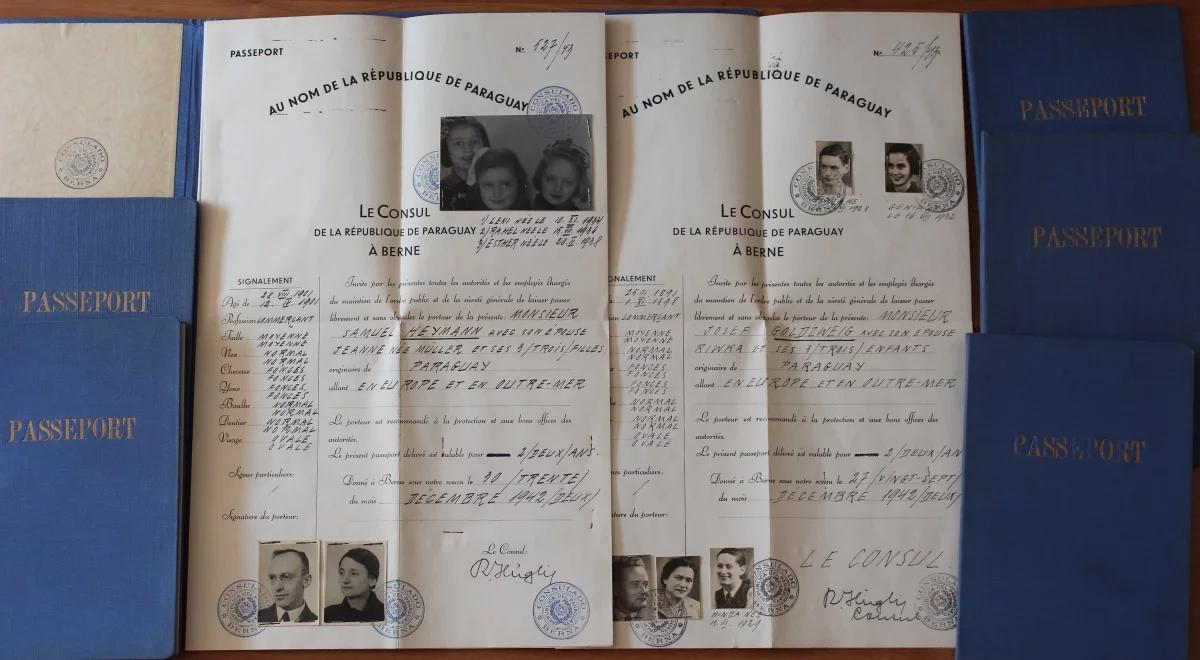 CONSULADO
BERNA
PASSEPORT
PASSEPORT
PASSEPORT
Nº 527/43
AU NOM DE LA RÉPUBLIQUE DE PARAGUAY
CONSULADO
BERNA
LE CONSUL
DE LA RÉPUBLIQUE DE PARAGUAY
À BERNE
2/ RAHEL NÉE LE
3/ ESTHER NÉE LE
SIGNALEMENT
Agé de 28 VIII 1901
12. IX 1901
Profession COMMERÇANT
Taille MOYENNE
MOYENNE
Nez NORMAL
NORMAL
Cheveux FONCÉS
FONCÉS
Yeux FONCÉS
FONCÉS
Bouche NORMAL
NORMAL
Dentier NORMAL
NORMAL
Visage OVALE
OVALE
Signes particuliers:
/
Signature du porteur:
Invite par les présentes toutes les autorités et les employés chargés
du maintien de l'ordre public et de la sûreté générale de laisser passer
librement et sans obstacles le porteur de la présente: MONSIEUR
SAMUEL HEYMANN AVEC SON ÉPOUSE
JEANNE NÉE MÜLLER ET SES 3/TROIS/FILLES
originaire de PARAGUAY
allant EN EUROPE ET EN OUTRE-MER
Le porteur est recommandé à la protection et aux bons offices des
autorités.
Le présent passeport délivré est valable pour 2/DEUX/ANS.
Donné à Berne sous notre sceau le 30 /TRENTE/
du mois DÉCEMBRE 1942/DEUX/
Le Consul:
R Hügli
CONSULADO
BERNA
CONSULADO
BERNA
SEPORT
Nº 425/43
AU NOM DE LA RÉPUBLIQUE DE PARAGUAY
GENIA
LE CONSUL
DE LA RÉPUBLIQUE DE PARAGUAY
À BERNE
GNALEMENT
COMMERÇANT
MOYENNE
MOYENNE
NORMAL
NORMAL
FONCÉS
FONCÉS
FONCÉS
FONCÉS
NORMAL
NORMAL
NORMAL
NORMAL
OVALE
OVALE
es particuliers:
/
ture du porteur:
Invite par les présentes toutes les autorités et les employés chargés
du maintien de l'ordre public et de la sûreté générale de laisser passer
librement et sans obstacles le porteur de la présente: MONSIEUR
JOSEF GOLDZWEIG AVEC SON ÉPOUSE
RIWKA ET SES 3/TROIS/ENFANTS
originaire de PARAGUAY
allant EN EUROPE ET EN OUTRE-MER
Le porteur est recommandé à la protection et aux bons offices des
autorités.
Le présent passeport délivré est valable pour 2/DEUX/AN
Donné à Berne sous notre sceau le 27/VINGT-SEPT/
du mois DÉCEMBRE 1942/DEUX/
LE CONSUL.
R Hügli
Consul
CONSULADO
BERNA
PASSEPORT
PASSEPORT
PASSEPORT